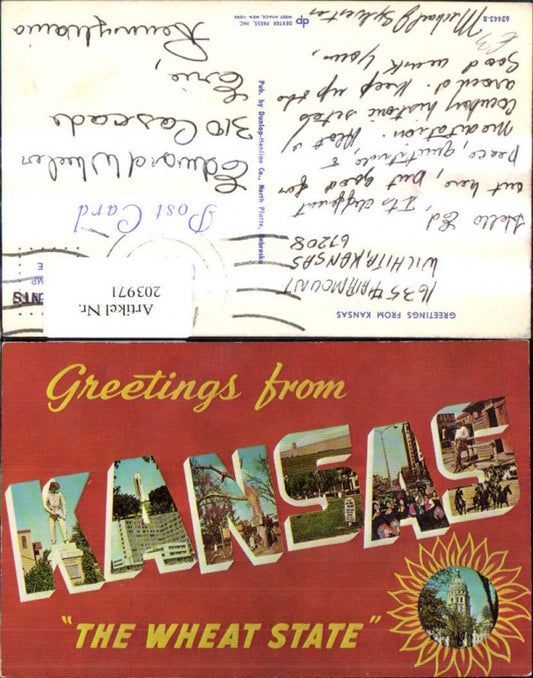 GREETINGS FROM KANSAS
1635 FAIRMOUNT
WICHITA, KANSAS
67208
Hello Ed Its different
out here, but good for
Peace, quietude, &
meditation. Plot of
Cowboy historic sites
around. Keep up the
Good work your,
Michael J Sylvester
62443-B
DEXTER PRESS, INC.
WEST NYACK, NEW YORK
dp
Pub. by Dunlap-Henline Co., North Platte, Nebraska
Post Card
Edward Wheeler
310 Cascade
Erie,
Pennsylvania
Artikel Nr.
203971
Greetings from
KANSAS
"THE WHEAT STATE"